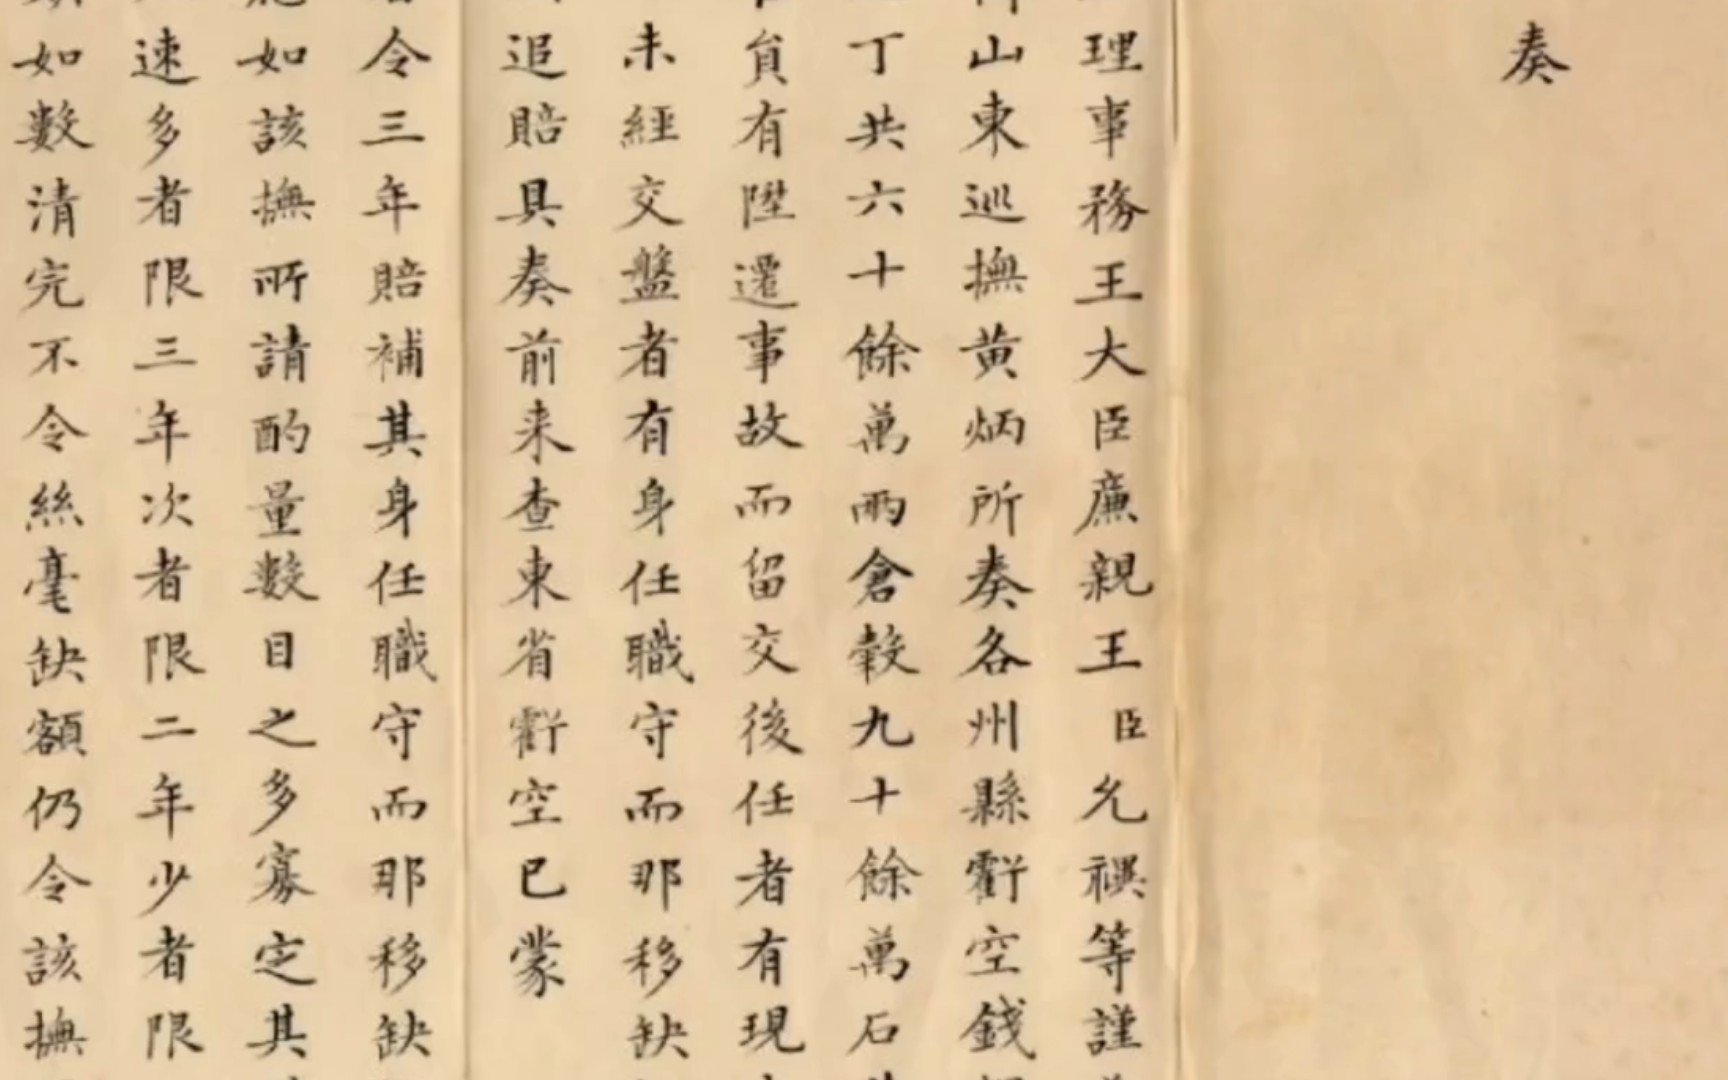 奏
理事務王大臣廉親王臣允禩等謹
山東巡撫黄炳所奏各州縣虧空錢
丁共六十餘萬兩倉穀九十餘萬石
負有陞遷事故而留交後任者有現
未經交盤者有身任職守而那移缺
追賠具奏前来查東省虧空已蒙
令三年賠補其身任職守而那移缺
如該撫所請酌量數目之多寡定其
速多者限三年次者限二年少者限
如數清完不令絲毫缺額仍令該撫